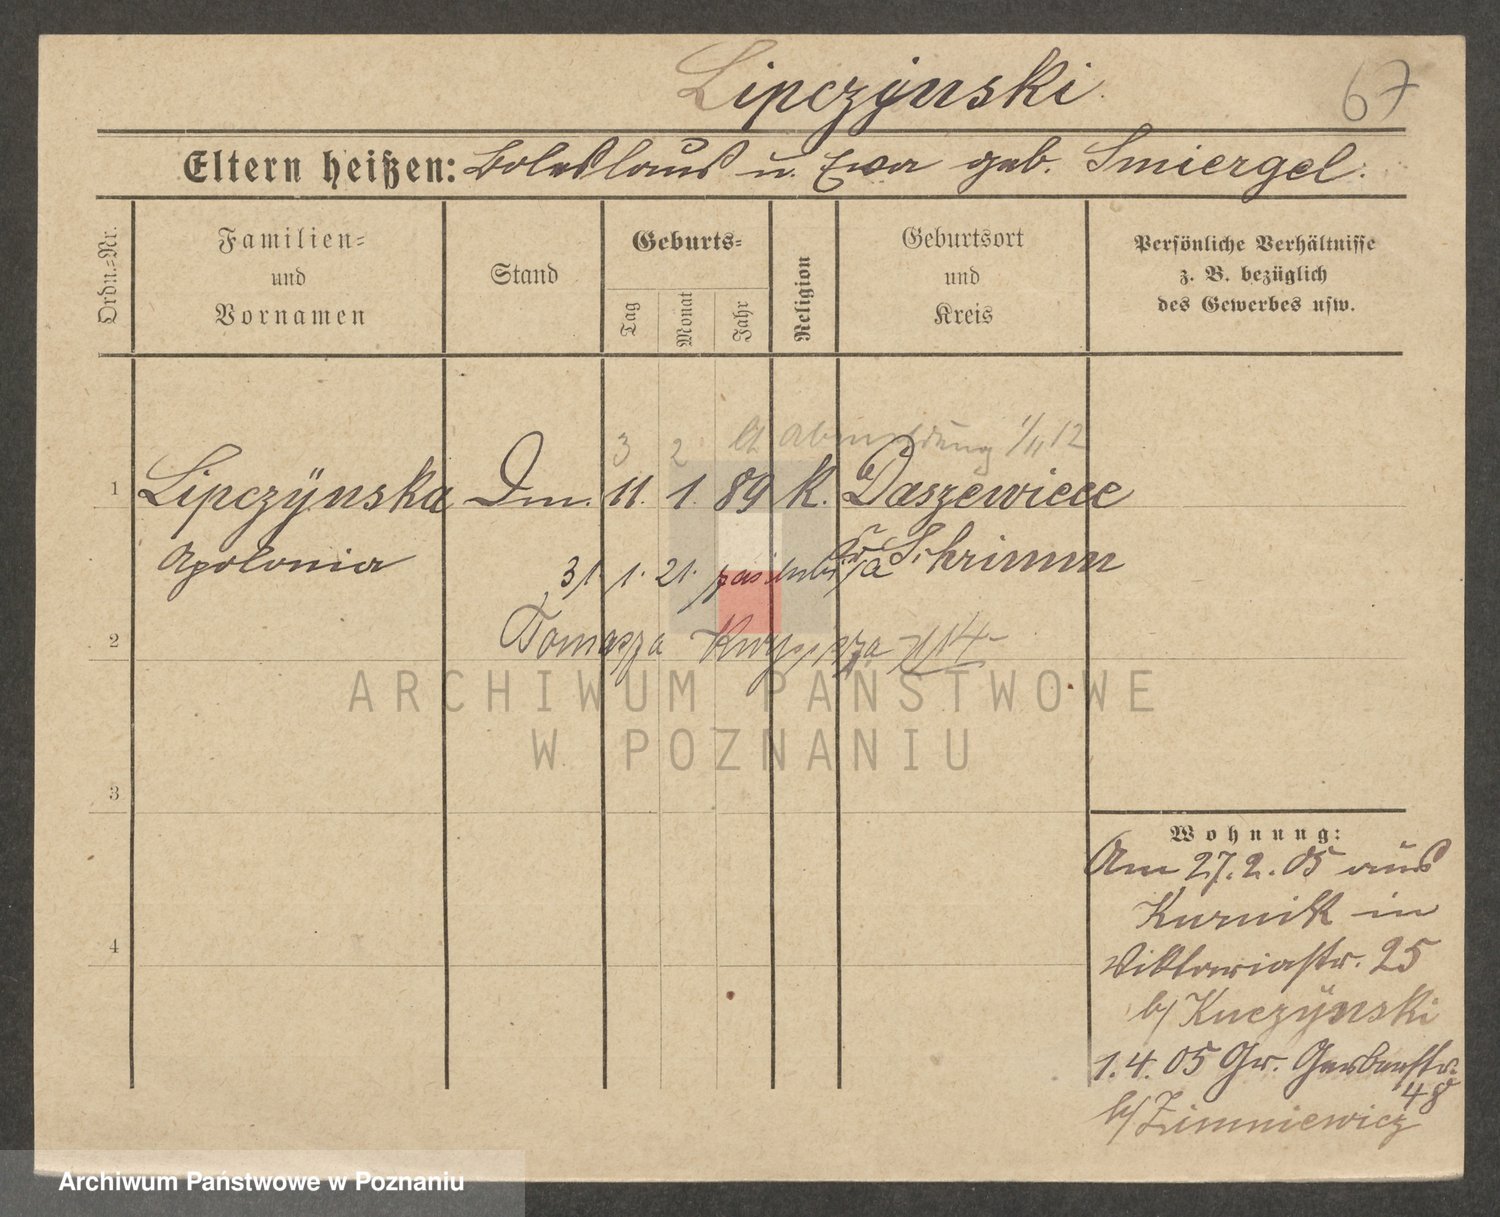 Lipczÿnski
67
Eltern heißen: Boleslaus u. Ewa geb. Smiergel.
Ordn.=Nr.
Familien=
und
Vornamen
Stand
Geburts=
Tag
Monat
Jahr
Religion
Geburtsort
und
Kreis
Persönliche Verhältnisse
z. B. bezüglich
des Gewerbes usw.
3 2 Abmeldung 1/11 12
1 Lipczÿnska Dm. 11. 1. 89 K. Daszewice
Apolonia Kr. Schrimm
31. 1. 21.
2 Tomasza
3
4
Wohnung:
Am 27.2.05 aus
Kurnik in
Viktoriastr. 25
b/ Kuczÿnski
1.4.05 Gr. Gerberstr.
48
b/ Zimniewicz
ARCHIWUM PAŃSTWOWE
W POZNANIU
Archiwum Państwowe w Poznaniu